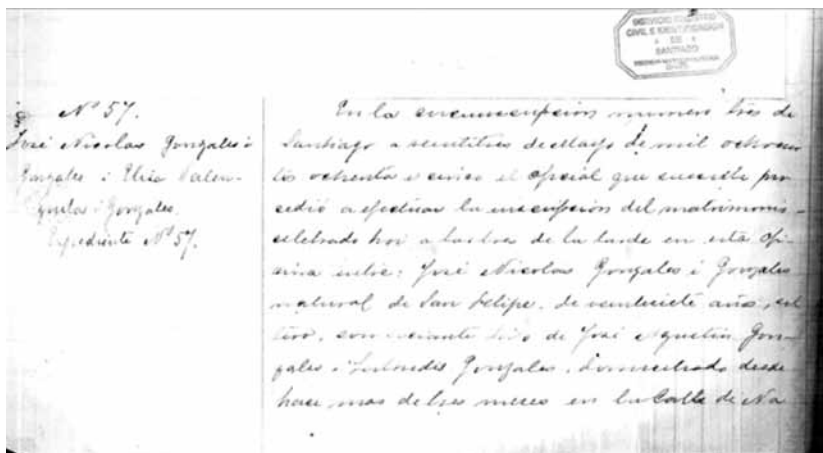 SERVICIO REGISTRO
CIVIL E IDENTIFICACION
DE
SANTIAGO
Nº 57.
José Nicolas Gonzales i
Gonzales i Elisa Valen-
zuela i Gonzales.
Expediente Nº 57.
En la circunscripcion numero tres de
Santiago a veintitres de Mayo de mil ochocien
tos ochenta i cinco el oficial que suscribe pro
cedió a efectuar la inscripcion del matrimonio
celebrado hoi a las tres de la tarde en esta ofi
cina entre: José Nicolas Gonzales i Gonzales
natural de San Felipe, de veintisiete años, sol
tero, comerciante hijo de José Agustin Gon
zales i Gonzales, domiciliado desde
hace mas de tres meses en la Calle de Na